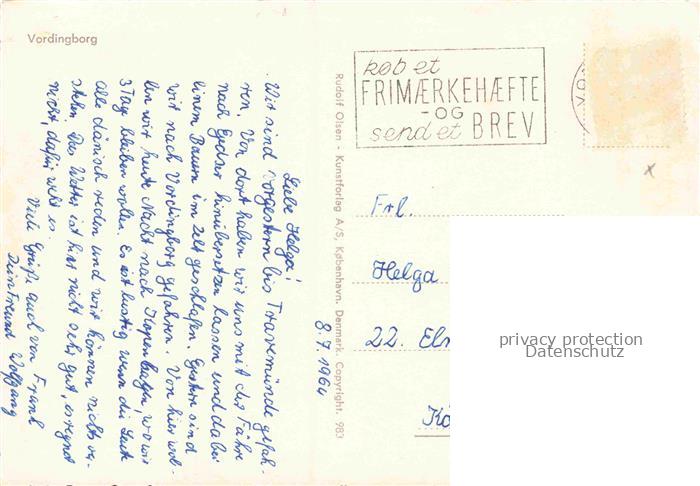 Vordingborg
køb et
FRIMÆRKEHÆFTE
- OG
send et BREV
Rudolf Olsen - Kunstforlag A/S, København. Denmark. Copyright. 983
8.7.1964
Liebe Helga!
Wir sind vorgestern bis Travemünde gefah-
ren. Von dort haben wir uns mit der Fähre
nach Gedser hinübersetzen lassen und dabei
einem Baum im Zelt geschlafen. Gestern sind
wir nach Vordingborg gefahren. Von hier wol-
len wir heute Nacht nach Kopenhagen, wo wir
3 Tag bleiben wollen. Es ist lustig wenn die Leute
alle dänisch reden und wir können nichts ver-
stehen. Das Wetter ist hier nicht sehr gut, es regnet
nicht, dafür weht es.
Viele Grüße auch von Frank
Dein Freund Wolfgang
Frl.
Helga
22. Elm
Kö
privacy protection
Datenschutz